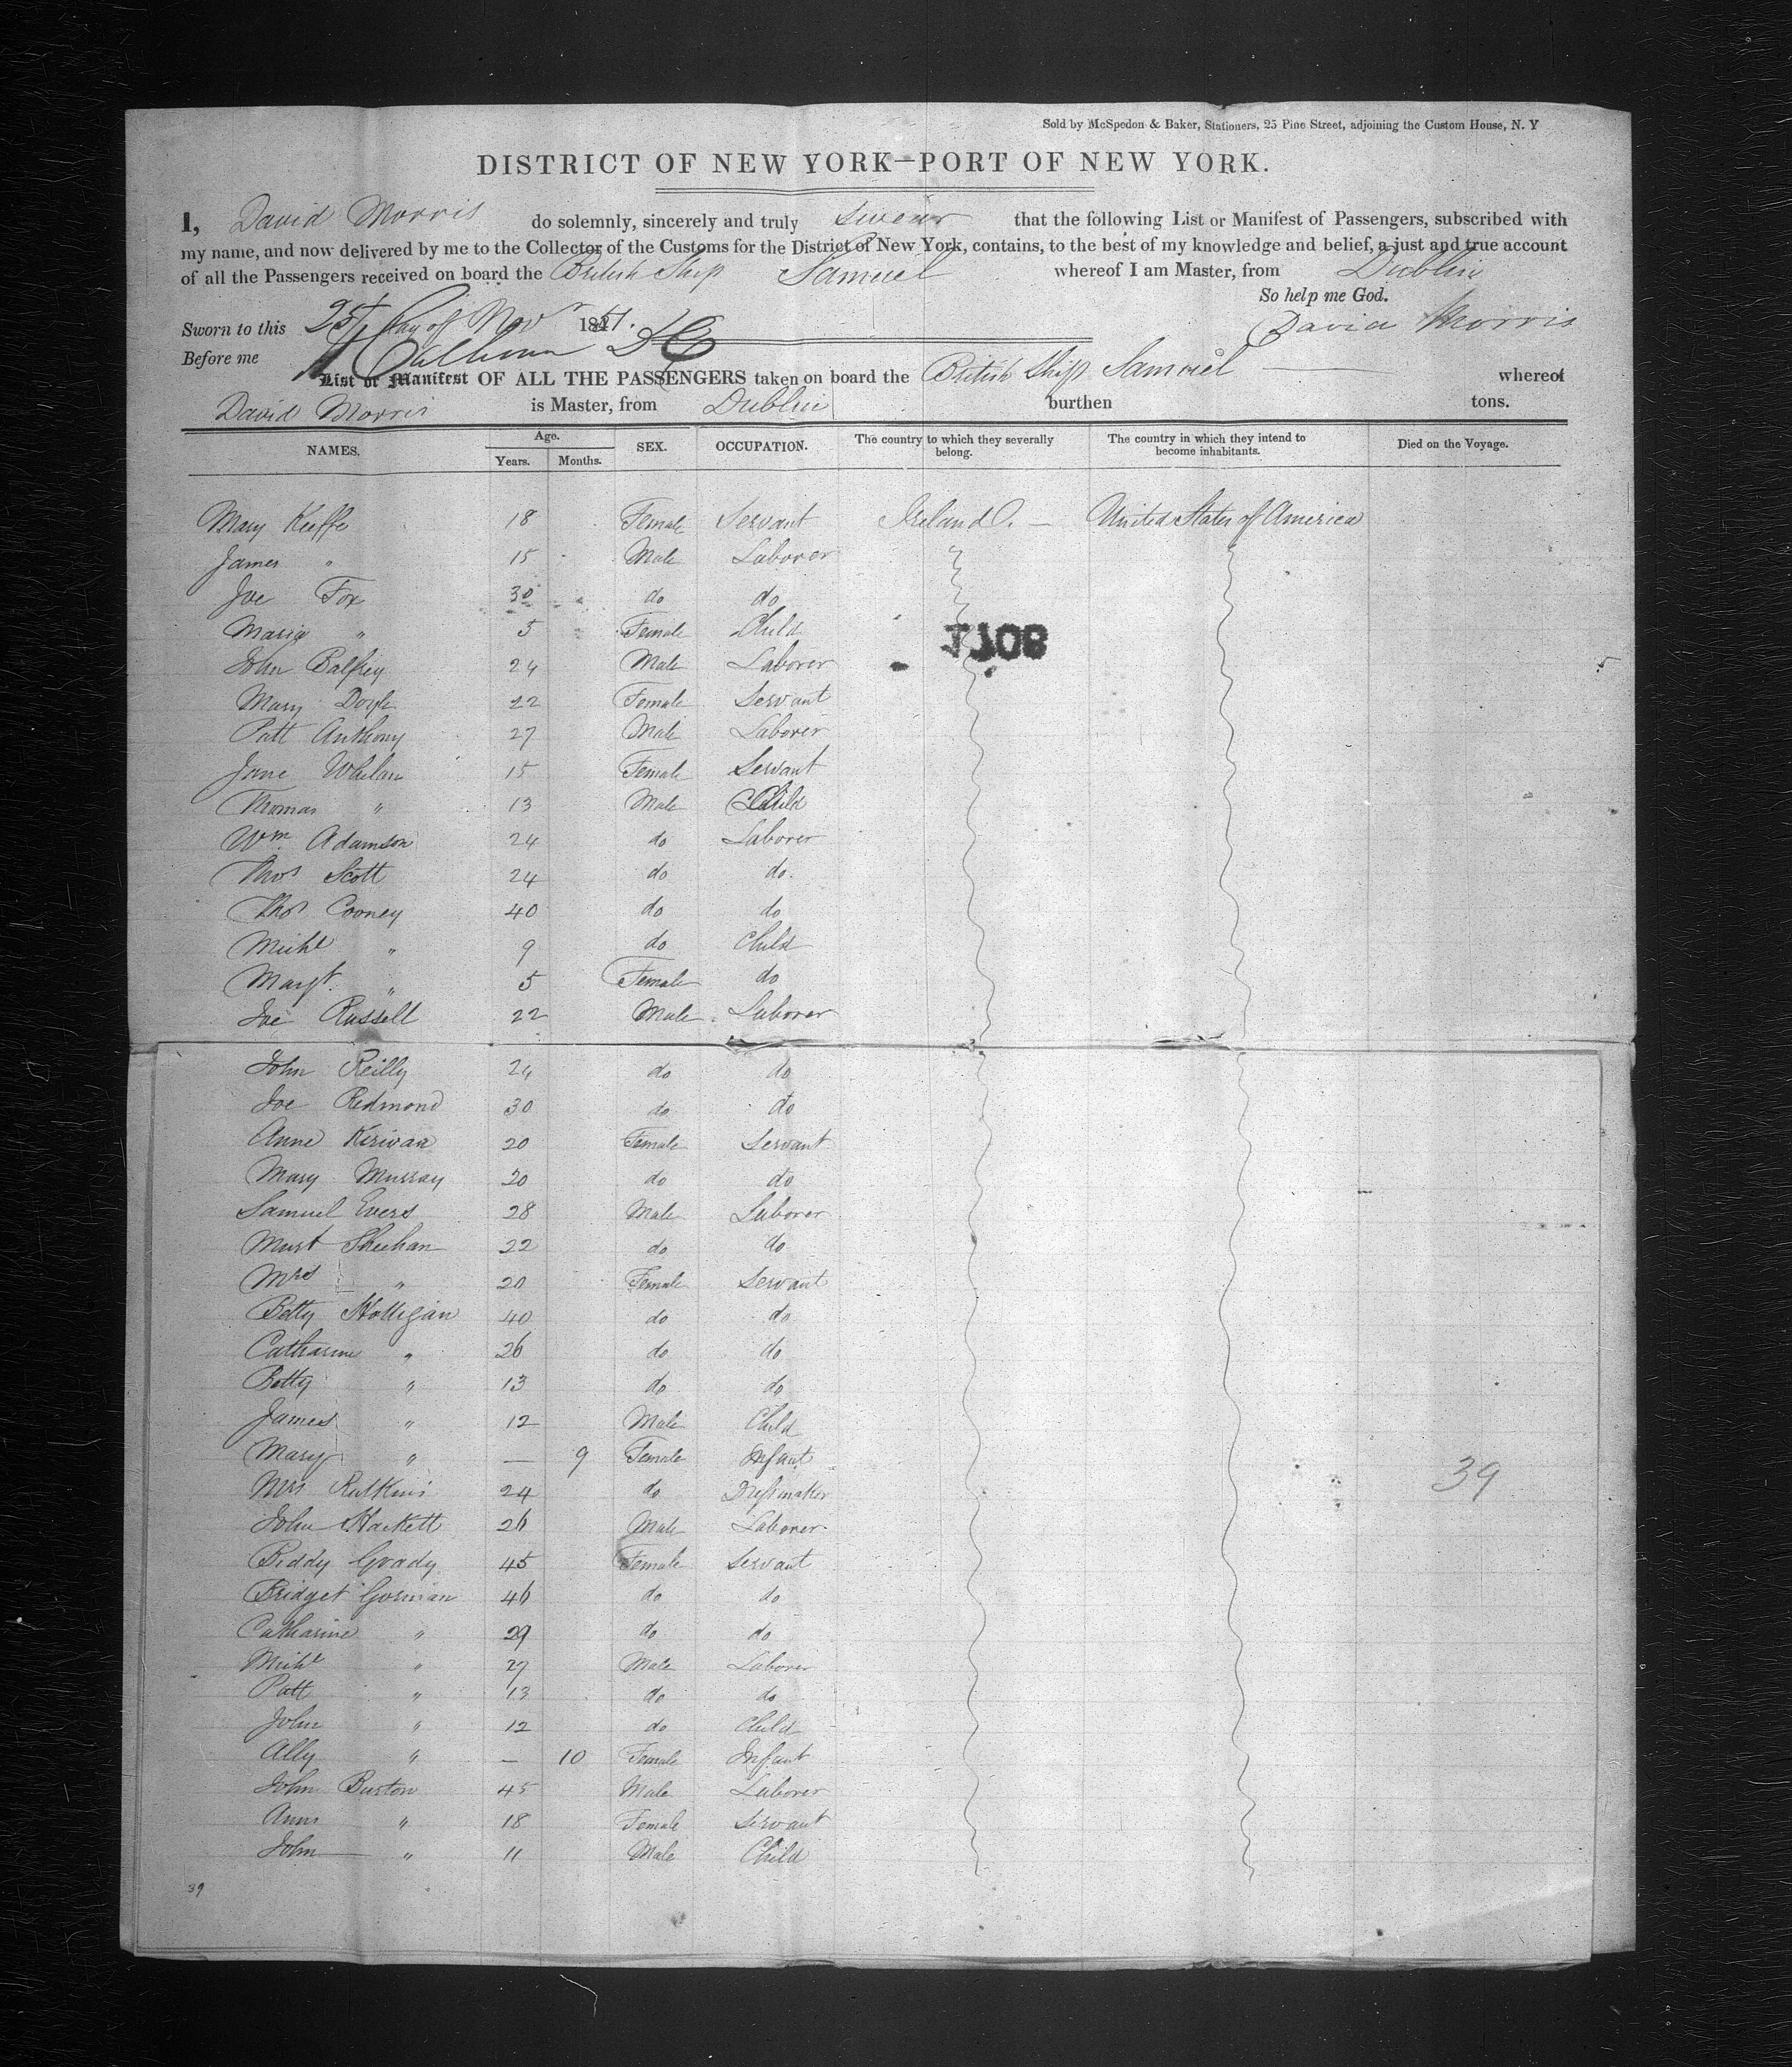 Sold by McSpedon & Baker, Stationers, 25 Pine Street, adjoining the Custom House, N. Y
DISTRICT OF NEW YORK—PORT OF NEW YORK.
I, David Morris do solemnly, sincerely and truly swear that the following List or Manifest of Passengers, subscribed with
my name, and now delivered by me to the Collector of the Customs for the District of New York, contains, to the best of my knowledge and belief, a just and true account
of all the Passengers received on board the British Ship Samuel whereof I am Master, from Dublin
So help me God.
Sworn to this 25th day of Novr 1851. David Morris
Before me Calhoun
List or Manifest OF ALL THE PASSENGERS taken on board the British Ship Samuel whereof
David Morris is Master, from Dublin burthen tons.
NAMES. Age. Years. Months. SEX. OCCUPATION. The country to which they severally belong. The country in which they intend to become inhabitants. Died on the Voyage.
Mary Keeffe 18 Female Servant Ireland. — United States of America
James " 15 Male Laborer
Joe Fox 30 do do
Maria " 5 Female Child
John 24 Male Laborer
Mary Doyle 22 Female Servant
Patt Anthony 27 Male Laborer
Jane Whelan 15 Female Servant
Thomas " 13 Male Child
Wm. Adamson 24 do Laborer
Thos Scott 24 do do.
Thos Cooney 40 do do
Michl " 9 do Child
Margt. " 5 Female do
Joe Russell 22 Male Laborer
John Reilly 24 do do
Joe Redmond 30 do do
Anne Kirivan 20 Female Servant
Mary Murray 20 do do
Samuel Evers 28 Male Laborer
Murt Sheehan 22 do do
Mrs " 20 Female Servant
Betty Holligan 40 do do
Catharine " 26 do do
Betty " 13 do do
James " 12 Male Child
Mary " — 9 Female Infant
Mrs 24 do Dressmaker 39
John Hackett 26 Male Laborer
Biddy Grady 45 Female Servant
Bridget Gorman 46 do do
Catharine " 29 do do
Michl " 27 Male Laborer
Patt " 13 do do
John " 12 do Child
Ally " — 10 Female Infant
John Burton 45 Male Laborer
Ann " 18 Female Servant
John " 11 Male Child
39